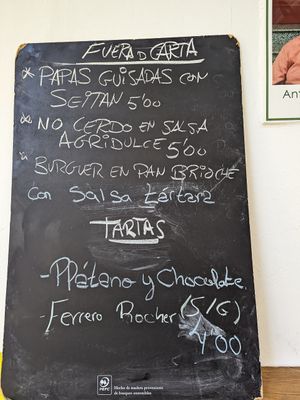 FUERA D CARTA
* PAPAS GUISADAS CON
SEITAN 5'00
* NO CERDO EN SALSA
AGRIDULCE 5'00
* BURGUER EN PAN BRIOCHE
Con Salsa tártara
TARTAS
- Plátano y Chocolate
- Ferrero Rocher (S/G)
4'00
PEFC
Hecho de madera proveniente
de bosques sostenibles
Ant